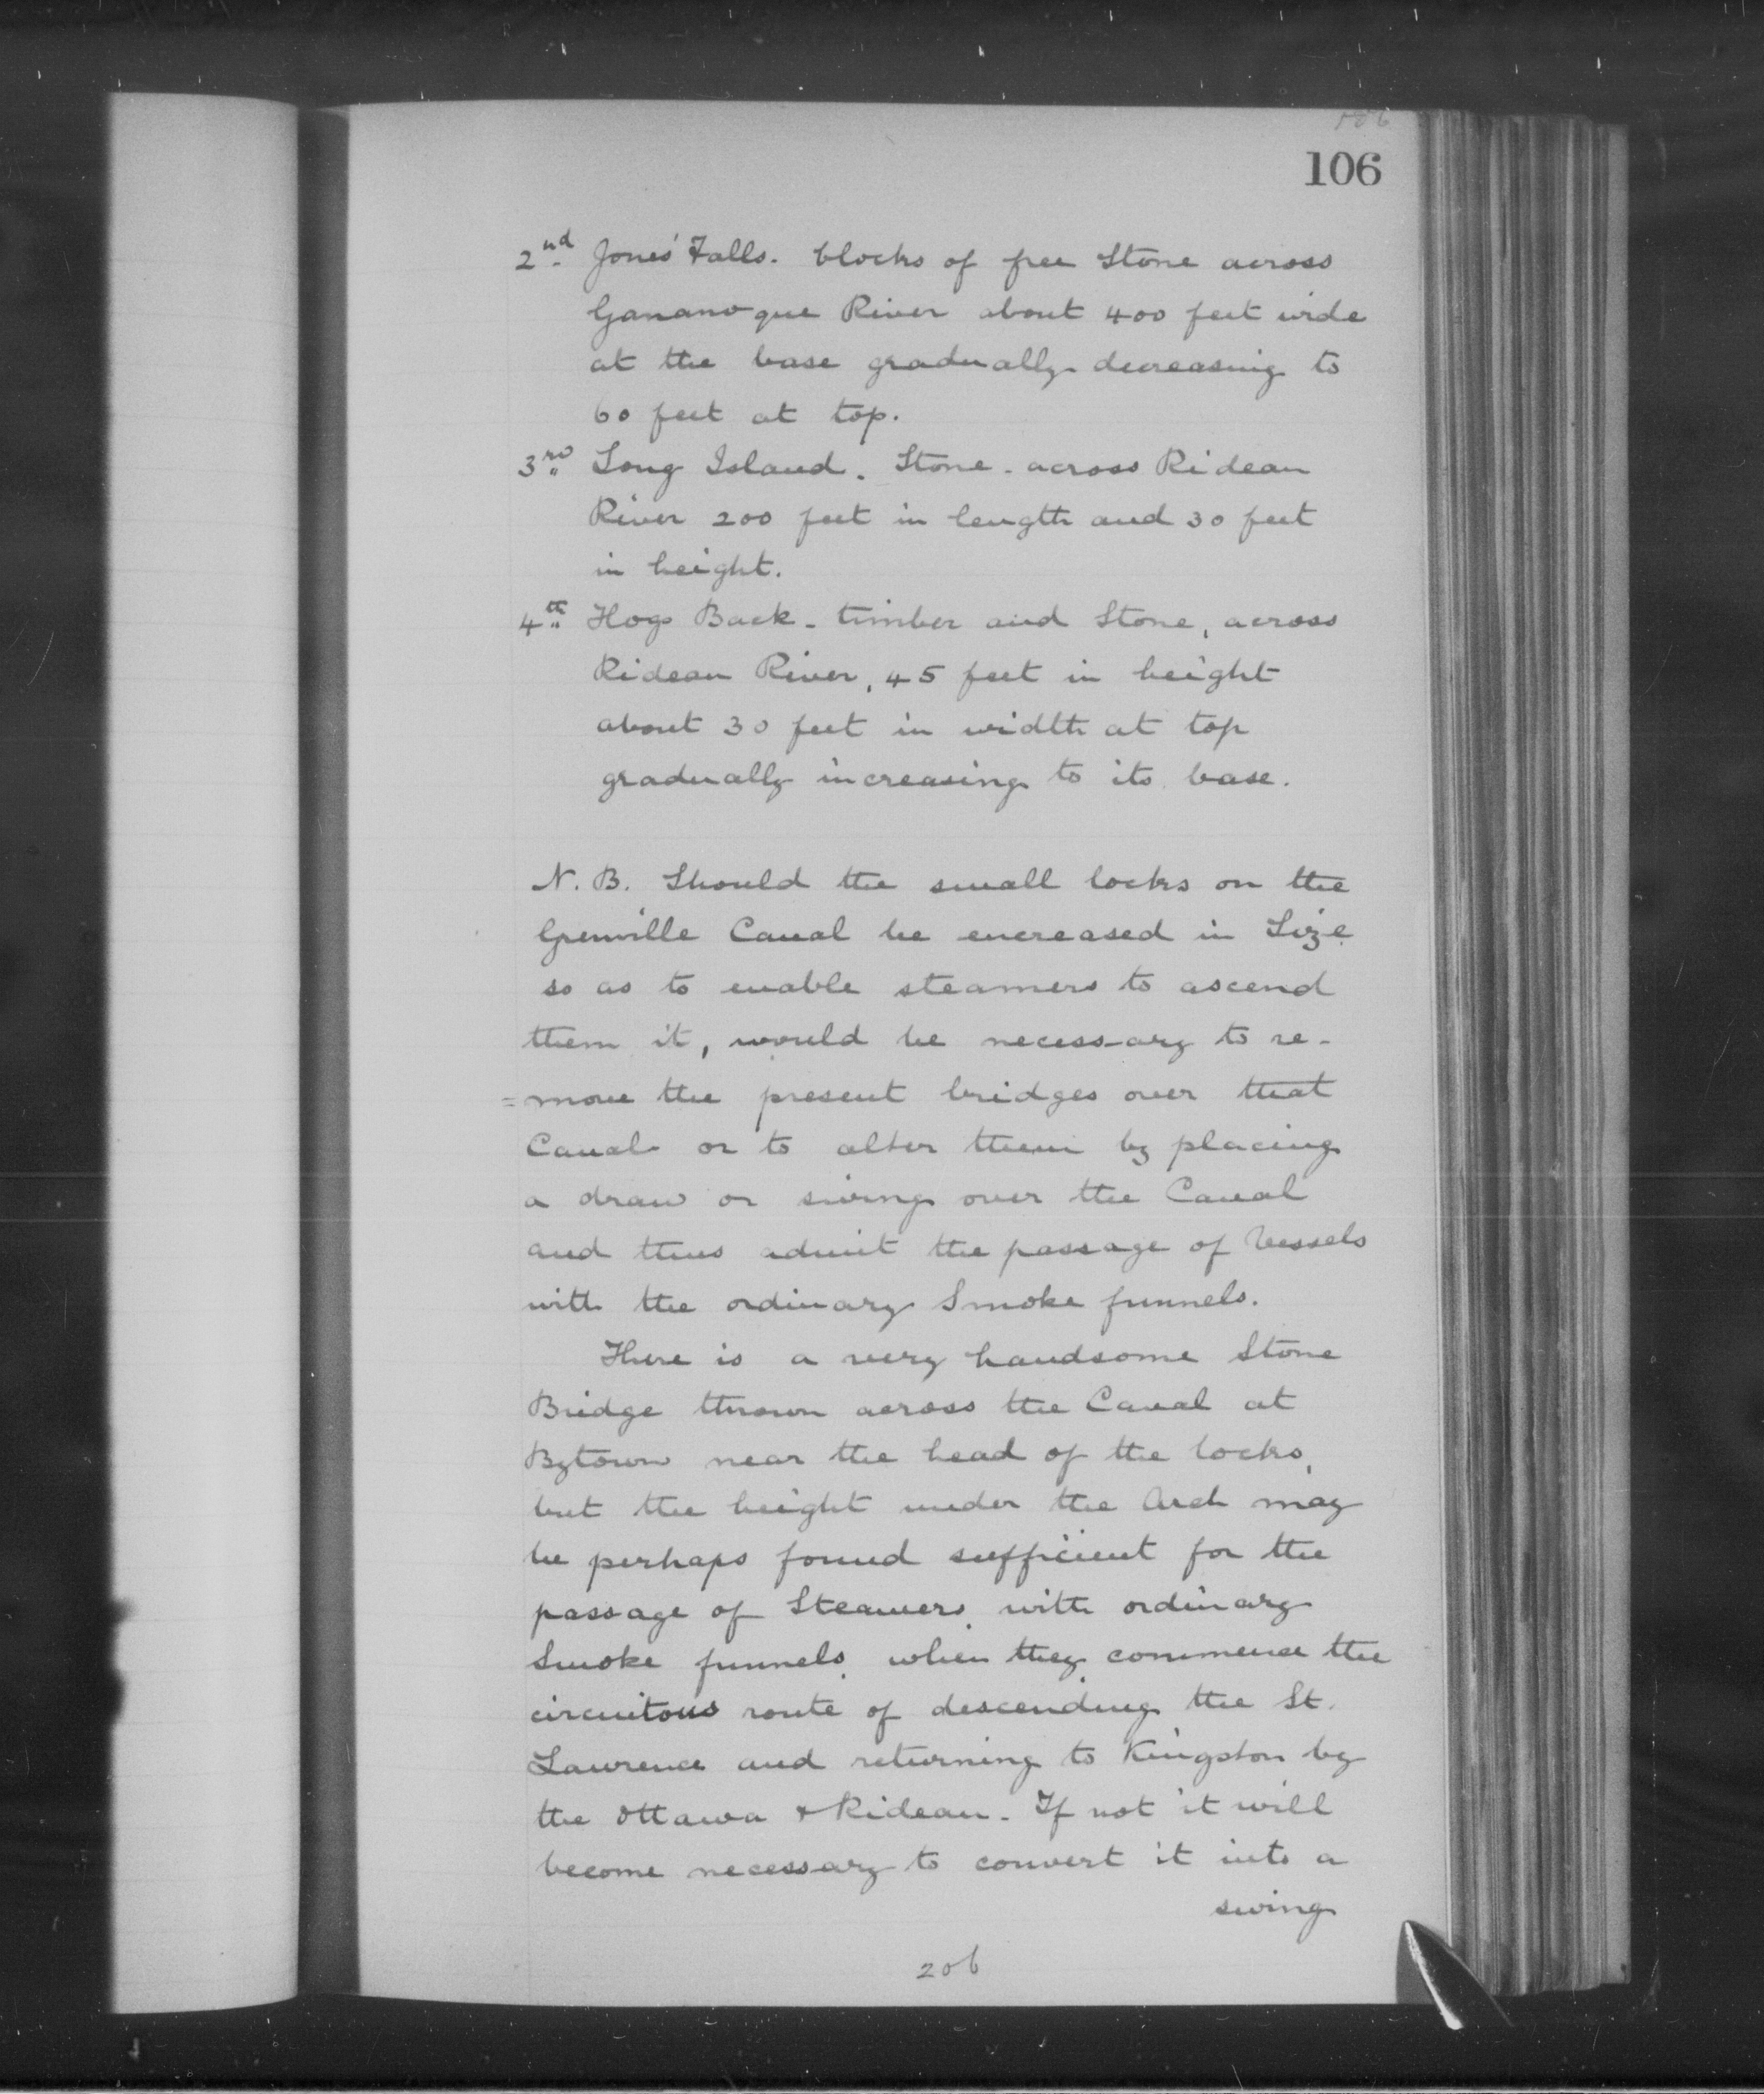 106
2nd Jones' Falls. blocks of free Stone across
Gananoque River about 400 feet wide
at the base gradually decreasing to
60 feet at top.
3rd Long Island. Stone - across Rideau
River 200 feet in length and 30 feet
in height.
4th Hogs Back - timber and Stone, across
Rideau River, 45 feet in height
about 30 feet in width at top
gradually increasing to its base.
N. B. Should the small locks on the
Grenville Canal be encreased in Size
so as to enable steamers to ascend
them it, would be necessary to re-
=move the present bridges over that
Canal or to alter them by placing
a draw or swing over the Canal
and thus admit the passage of Vessels
with the ordinary Smoke funnels.
There is a very handsome Stone
Bridge thrown across the Canal at
Bytown near the head of the locks,
but the height under the Arch may
be perhaps found sufficient for the
passage of Steamers with ordinary
Smoke funnels when they commence the
circuitous route of descending the St.
Lawrence and returning to Kingston by
the Ottawa & Rideau. If not it will
become necessary to convert it into a
swing
206